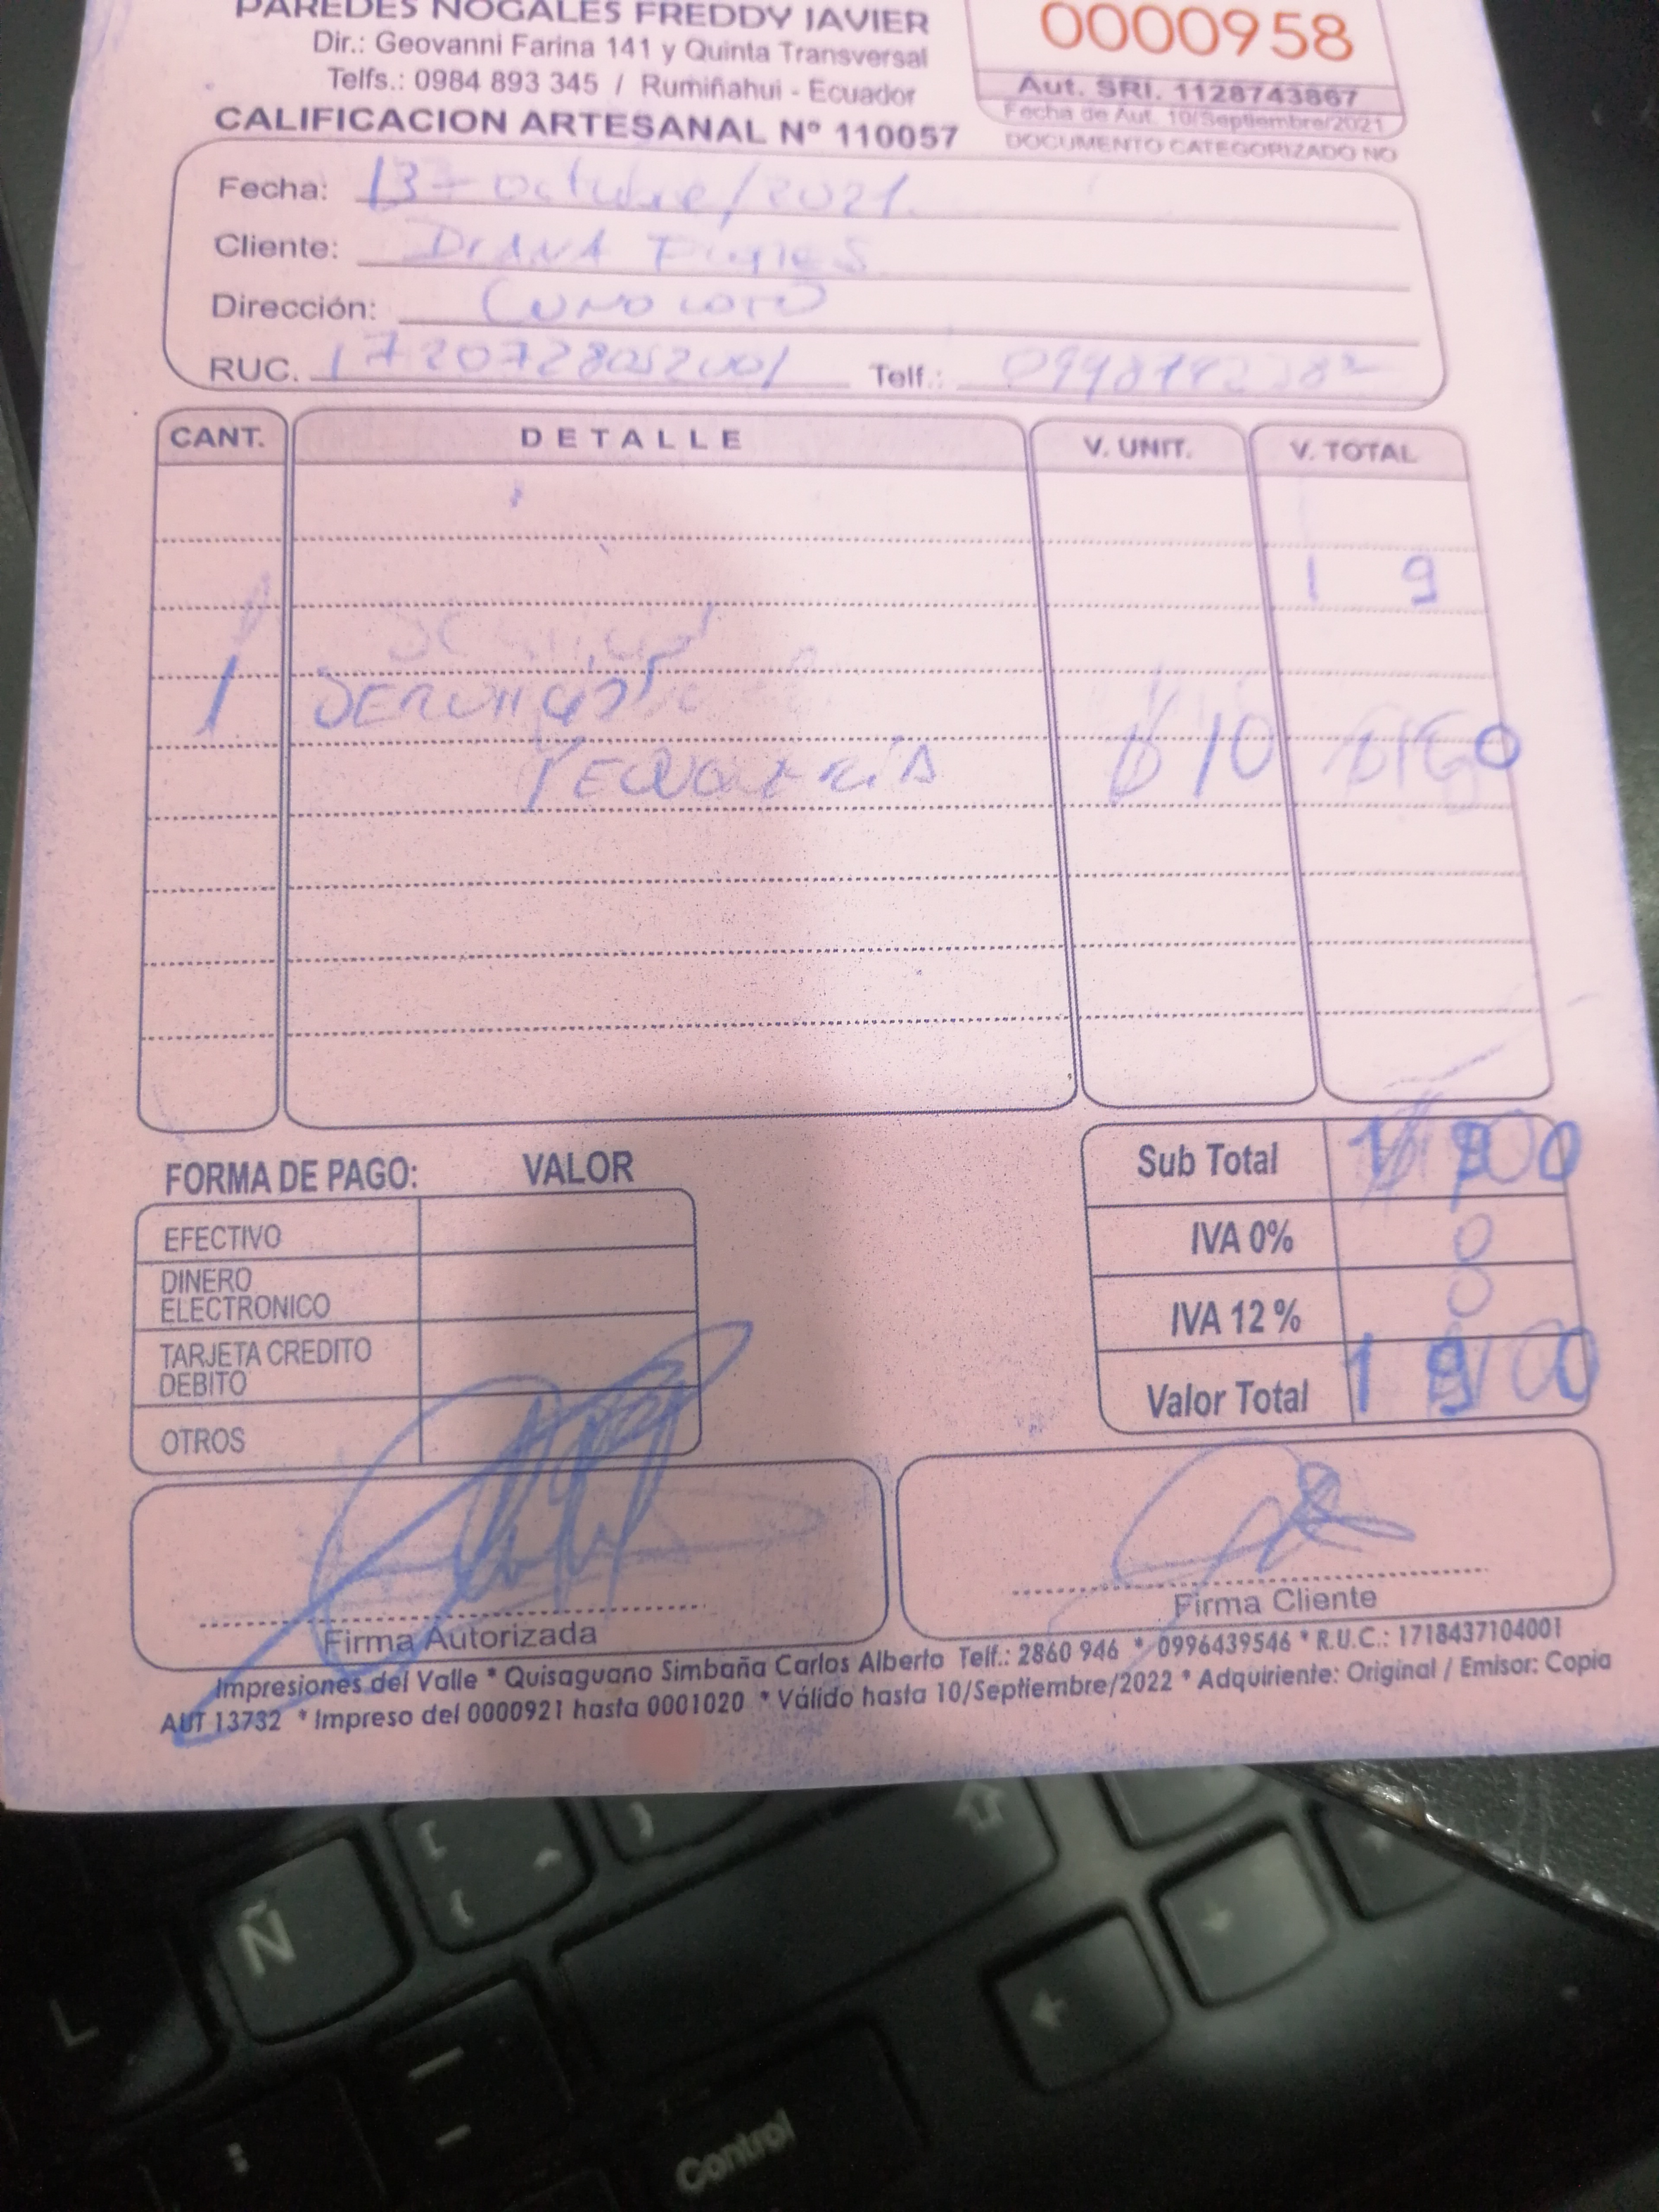 PAREDES NOGALES FREDDY JAVIER
0000958
Dir.: Geovanni Farina 141 y Quinta Transversal
Telfs.: 0984 893 345 / Rumiñahui - Ecuador
Aut. SRI. 1128743867
Fecha de Aut. 10/Septiembre/2021
CALIFICACION ARTESANAL Nº 110057
DOCUMENTO CATEGORIZADO NO
Fecha: 13 - octubre/2021.
Cliente: DIANA
Dirección: CONOCOTO
RUC. Telf.:
CANT. DETALLE V. UNIT. V. TOTAL
1 9
1
PELUQUERÍA $10
FORMA DE PAGO: VALOR
EFECTIVO
DINERO
ELECTRONICO
TARJETA CREDITO
DEBITO
OTROS
Sub Total
IVA 0% 0
IVA 12 % 0
Valor Total
Firma Autorizada
Firma Cliente
Impresiones del Valle * Quisaguano Simbaña Carlos Alberto Telf.: 2860 946 * 0996439546 * R.U.C.: 1718437104001
AUT 13732 * Impreso del 0000921 hasta 0001020 * Válido hasta 10/Septiembre/2022 * Adquiriente: Original / Emisor: Copia
L
Ñ
Control